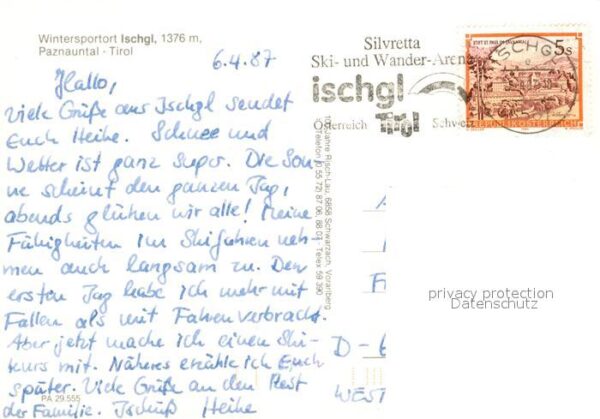 Wintersportort Ischgl, 1376 m,
Paznauntal - Tirol
6.4.87
Hallo,
viele Grüße aus Ischgl sendet
Euch Heike. Schnee und
Wetter ist ganz super. Die Son-
ne scheint den ganzen Tag,
abends glühen wir alle! Meine
Fähigkeiten im Skifahren neh-
men auch langsam zu. Den
ersten Tag habe ich mehr mit
Fallen als mit Fahren verbracht.
Aber jetzt mache ich einen Ski-
kurs mit. Näheres erzähle ich Euch
später. Viele Grüße an den Rest
der Familie. Tschüß Heike
PA 29.555
Risch-Lau, 6858 Schwarzach, Vorarlberg
Telefon (0 55 72) 87 06, 88 03 · Telex 59 390
Silvretta
Ski- und Wander-Arena
ischgl
Tirol
Österreich Schweiz
STIFT ST. PAUL IM LAVANTTAL
5s
REPUBLIK ÖSTERREICH
ISCHGL
D-6
WEST
privacy protection
Datenschutz